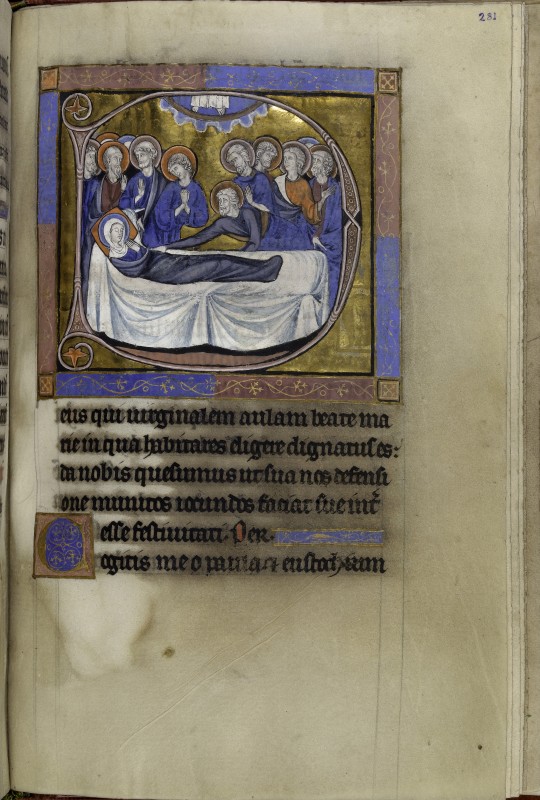 281
eus qui uirginalem aulam beate ma
rie in qua habitares eligere dignatus es:
da nobis quesumus ut sua nos defensi
one munitos iocundos faciat sue int̄
esse festiuitati. Per.
ogitis me o paula et eustochium